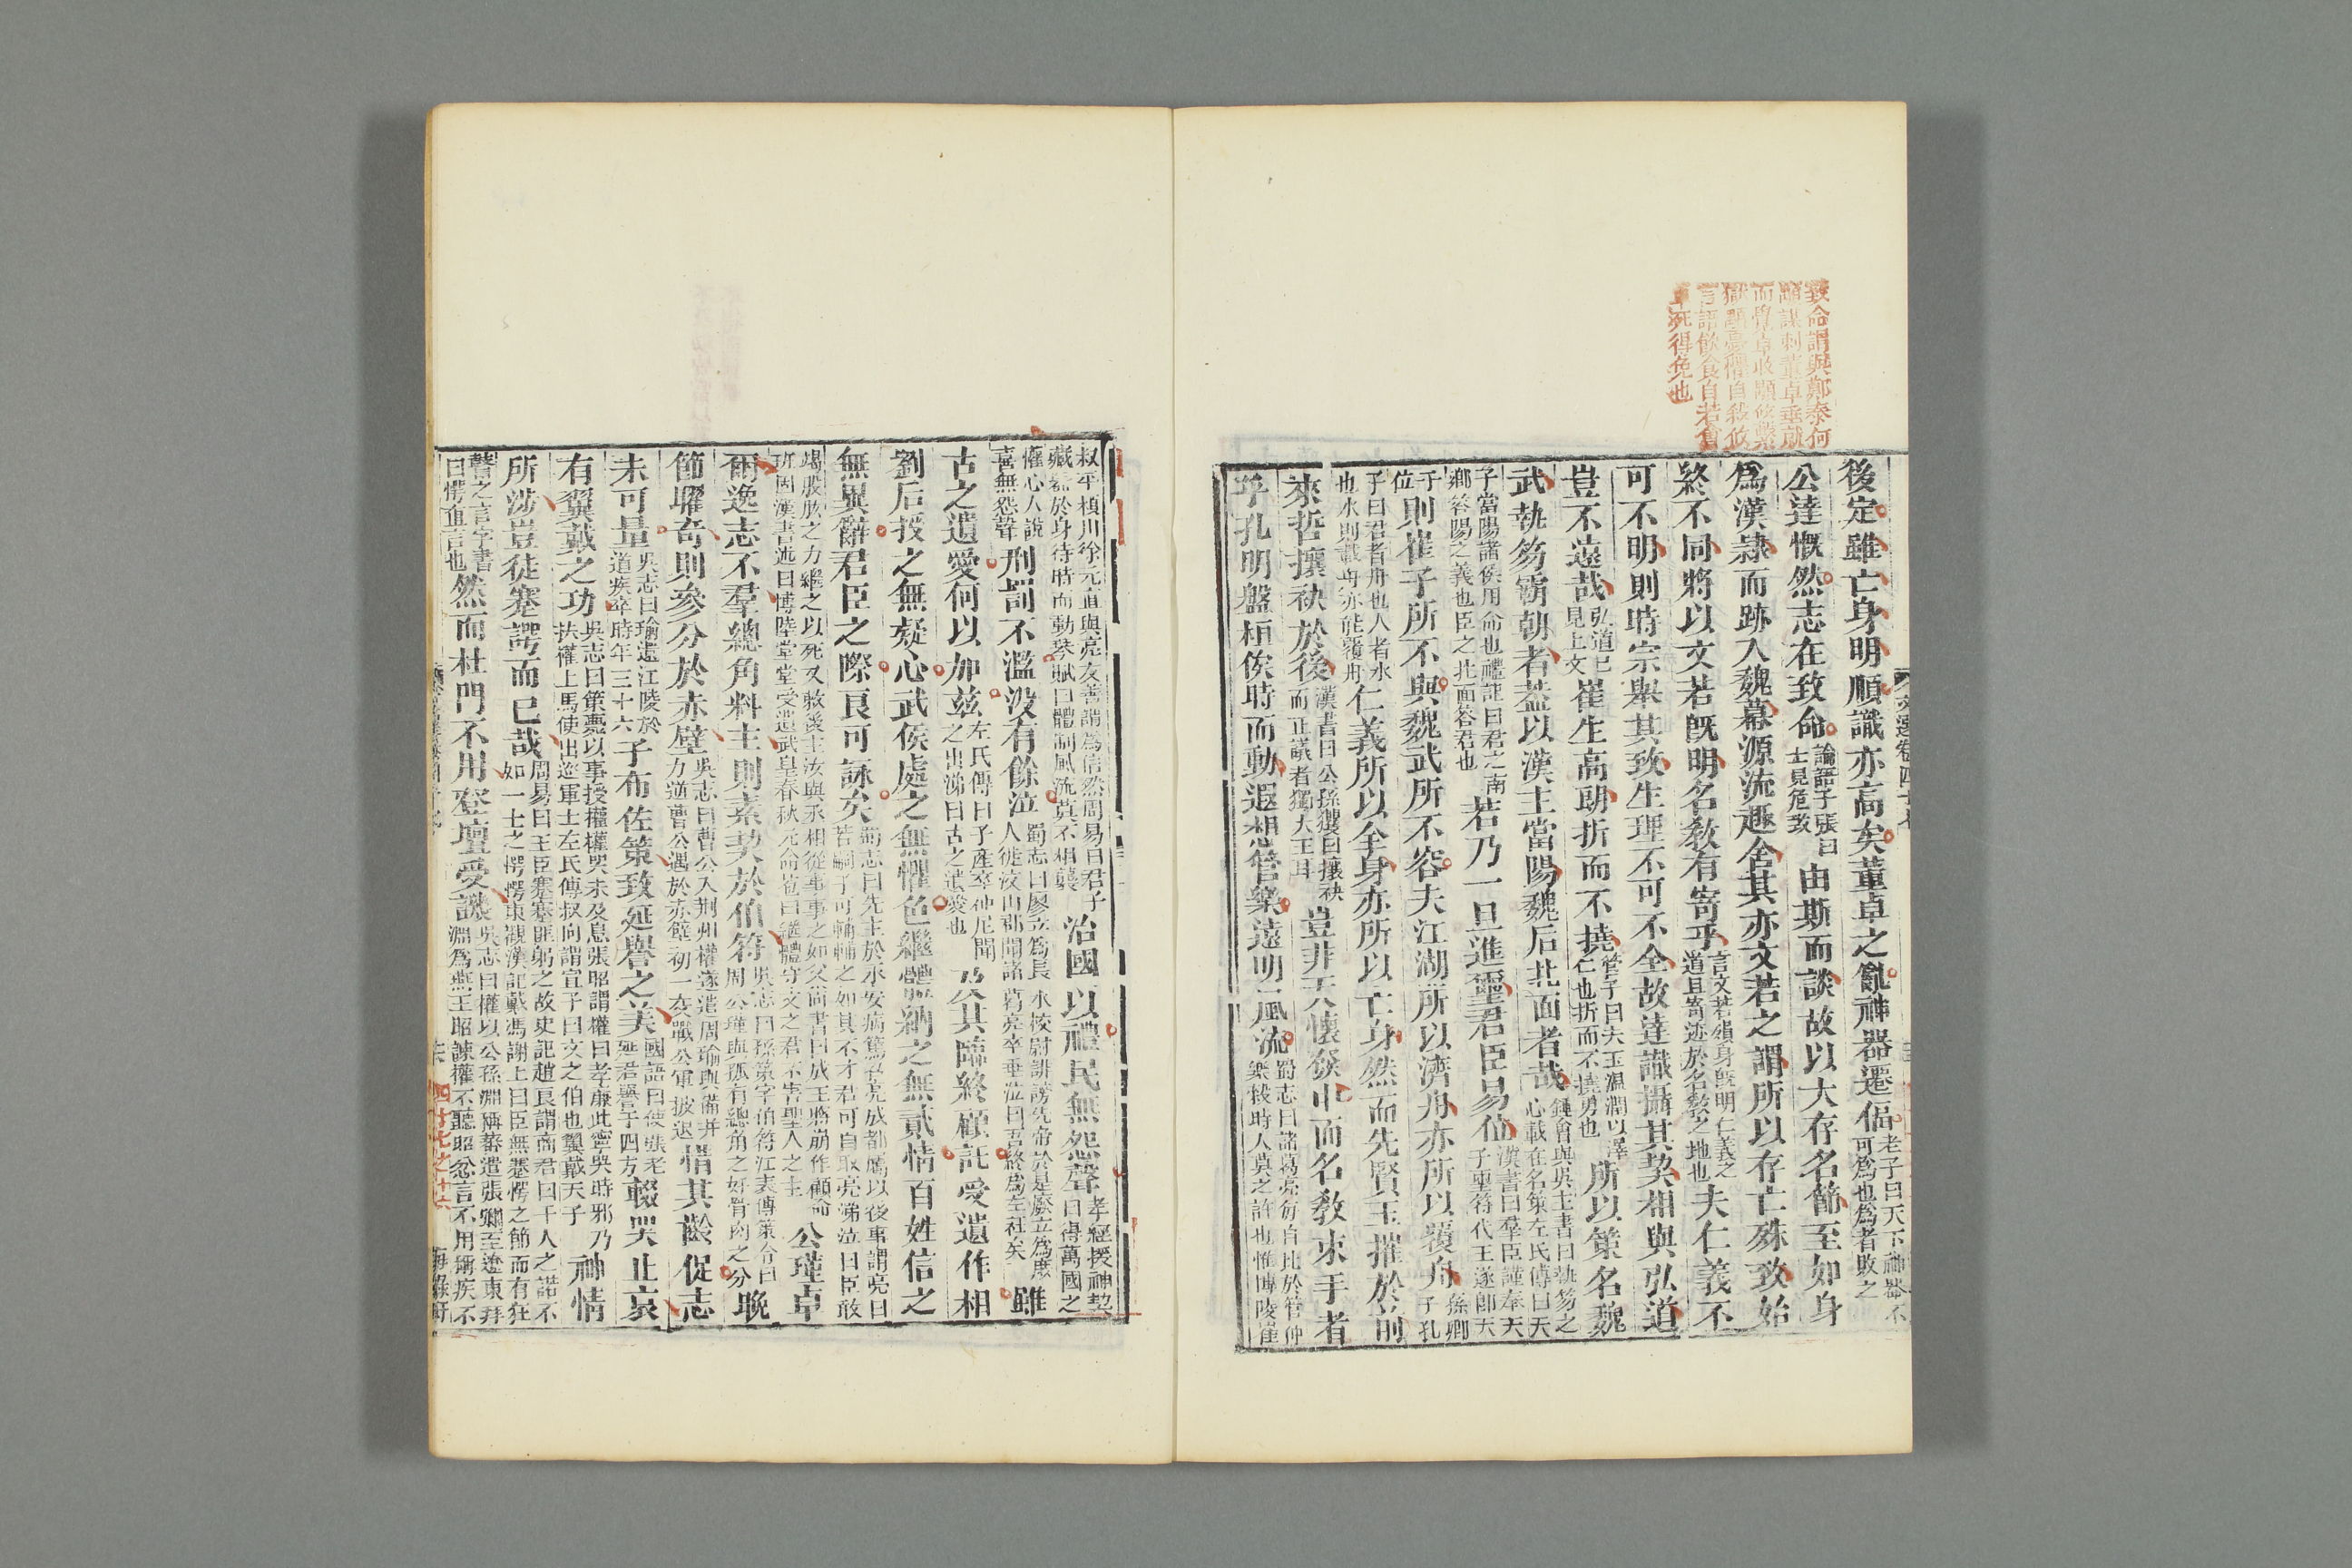 致命謂與鄭泰何
顒謀刺董卓垂就
而覺卓收顒攸繫
獄顒憂懼自殺攸
言語飲食自若會
卓死得免也
後定雖亡身明順識亦高矣董卓之亂神器遷偪老子曰天下神器不可爲也爲者敗之
公達慨然志在致命論語子張曰士見危致命由斯而談故以大存名節至如身
爲漢隷而跡入魏幕源流趣舍其亦文若之謂所以存亡殊致始
終不同將以文若旣明名教有寄乎言文若殞身旣明仁義之道且寄迹於名教之地也夫仁義不
可不明則時宗舉其致生理不可不全故達識攝其契相與弘道
豈不遠哉弘道已見上文崔生高朗折而不撓管子曰夫玉温潤以澤仁也折而不撓勇也所以策名魏
武執笏霸朝者葢以漢主當陽魏后北面者哉鍾會與吳主書曰執笏之心載在名策左氏傳曰天
子當陽諸侯用命也禮註曰君之南鄉荅陽之義也臣之北面荅君也若乃一旦進璽君臣易位漢書曰羣臣謹奉天子璽符代王遂卽天
子位則崔子所不與魏武所不容夫江湖所以濟舟亦所以覆舟孫卿子孔
子曰君者舟也人者水也水則載舟亦能覆舟仁義所以全身亦所以亡身然而先賢玉摧於前
來哲攘袂於後漢書曰公孫玃曰攘袂而正議者獨大王耳豈非天懷發中而名教束手者
乎孔明盤桓俟時而動遐想管樂遠明風流蜀志曰諸葛亮每自比於管仲樂毅時人莫之許也惟博陵崔
文選卷四十七
叔平潁川徐元直與亮友善謂爲信然周易曰君子藏器於身待時而動琴賦曰體制風流莫不相襲治國以禮民無怨聲孝經援神契曰得萬國之
懽心人說喜無怨聲刑罰不濫没有餘泣蜀志曰廖立爲長水校尉誹謗先帝於是廢立爲庶人徙汶山郡聞諸葛亮卒垂泣曰吾終爲左衽矣雖
古之遺愛何以加兹左氏傳曰子產卒仲尼聞之出涕曰古之遺愛也及其臨終顧託受遺作相
劉后授之無疑心武侯處之無懼色繼體納之無貳情百姓信之
無異辭君臣之際良可詠矣蜀志曰先主於永安病篤召亮成都屬以後事謂亮曰若嗣子可輔輔之如其不才君可自取亮涕泣曰臣敢
竭股肱之力繼之以死又敕後主汝與丞相從事事之如父尚書曰成王將崩作顧命班固漢書述曰博陸堂堂受遺武皇春秋元命苞曰繼體守文之君不害聖人之主公瑾卓
爾逸志不羣總角料主則素契於伯符吳志曰孫策字伯符江表傳策令曰周公瑾與孤有總角之好骨肉之分晚
節曜奇則參分於赤壁吳志曰曹公入荆州權遂遣周瑜與備并力逆曹公遇於赤壁初一交戰公軍披退惜其齡促志
未可量吳志曰瑜還江陵於道疾卒時年三十六子布佐策致延譽之美國語曰使張老延君譽于四方輟哭止哀
有翼戴之功吳志曰策薨以事授權權哭未及息張昭謂權曰孝廉此寧哭時邪乃扶權上馬使出巡軍士左氏傳叔向謂宣子曰文之伯也翼戴天子神情
所涉豈徒謇諤而已哉周易曰王臣蹇蹇匪躬之故史記趙良謂商君曰千人之諾不如一士之愕愕東觀漢記戴馮謝上曰臣無蹇愕之節而有狂
瞽之言字書曰愕直言也然而杜門不用登壇受譏吳志曰權以公孫淵稱藩遣張彌至遼東拜淵爲燕王昭諫權不聽昭忿言不用稱疾不
四廿七之十六
海錄軒